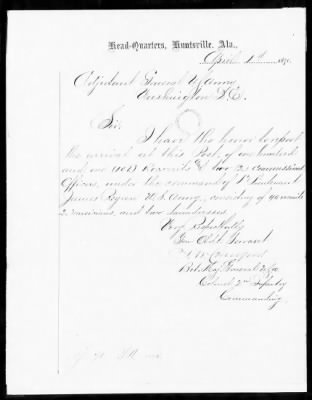 Head-Quarters, Huntsville, Ala.,
April 1st 1870.
Adjutant General U.S. Army
Washington D.C.
Sir:
I have the honor to report
the arrival at this Post, of one hundred
and one (101) Recruits & two (2) commissioned
Officers, under the command of 1st Lieutenant
James Regan U.S. Army, consisting of 90 recruits
2 musicians, and two laundresses
Very Respectfully
Your Obdt. Servant
Bvt. Maj. General U.S.A.
Colonel 2nd Infantry
Commanding